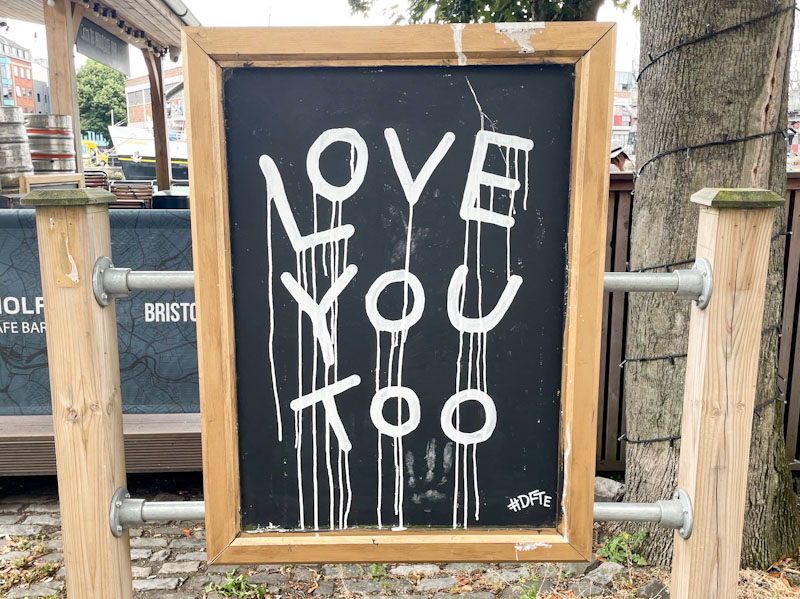 LOVE
YOU
TOO
#DFTE
OLF
AFE BAR
BRISTO